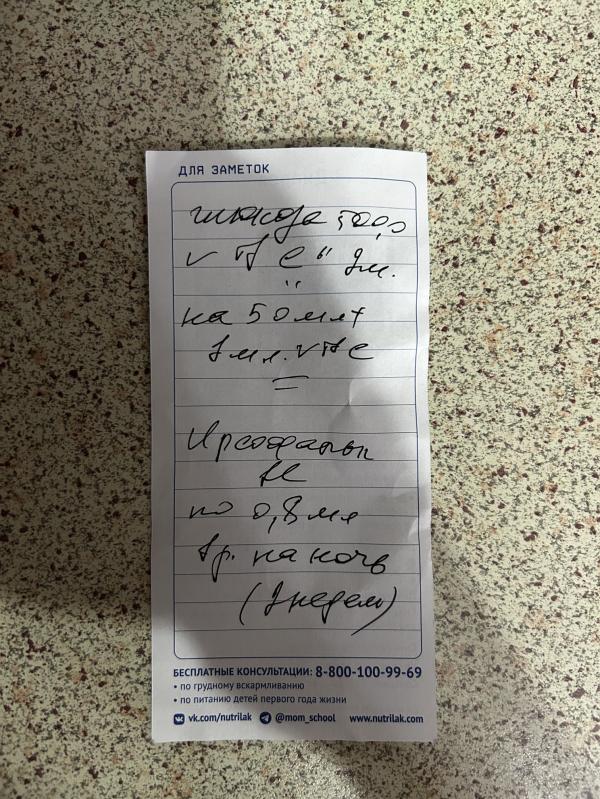 ДЛЯ ЗАМЕТОК
глюкоза
vit C"
на 50 мл +
1 мл. vit C
Урсофальк
по 0,8 мл
1р. на ночь
(2 недели)
БЕСПЛАТНЫЕ КОНСУЛЬТАЦИИ: 8-800-100-99-69
• по грудному вскармливанию
• по питанию детей первого года жизни
vk.com/nutrilak @mom_school www.nutrilak.com